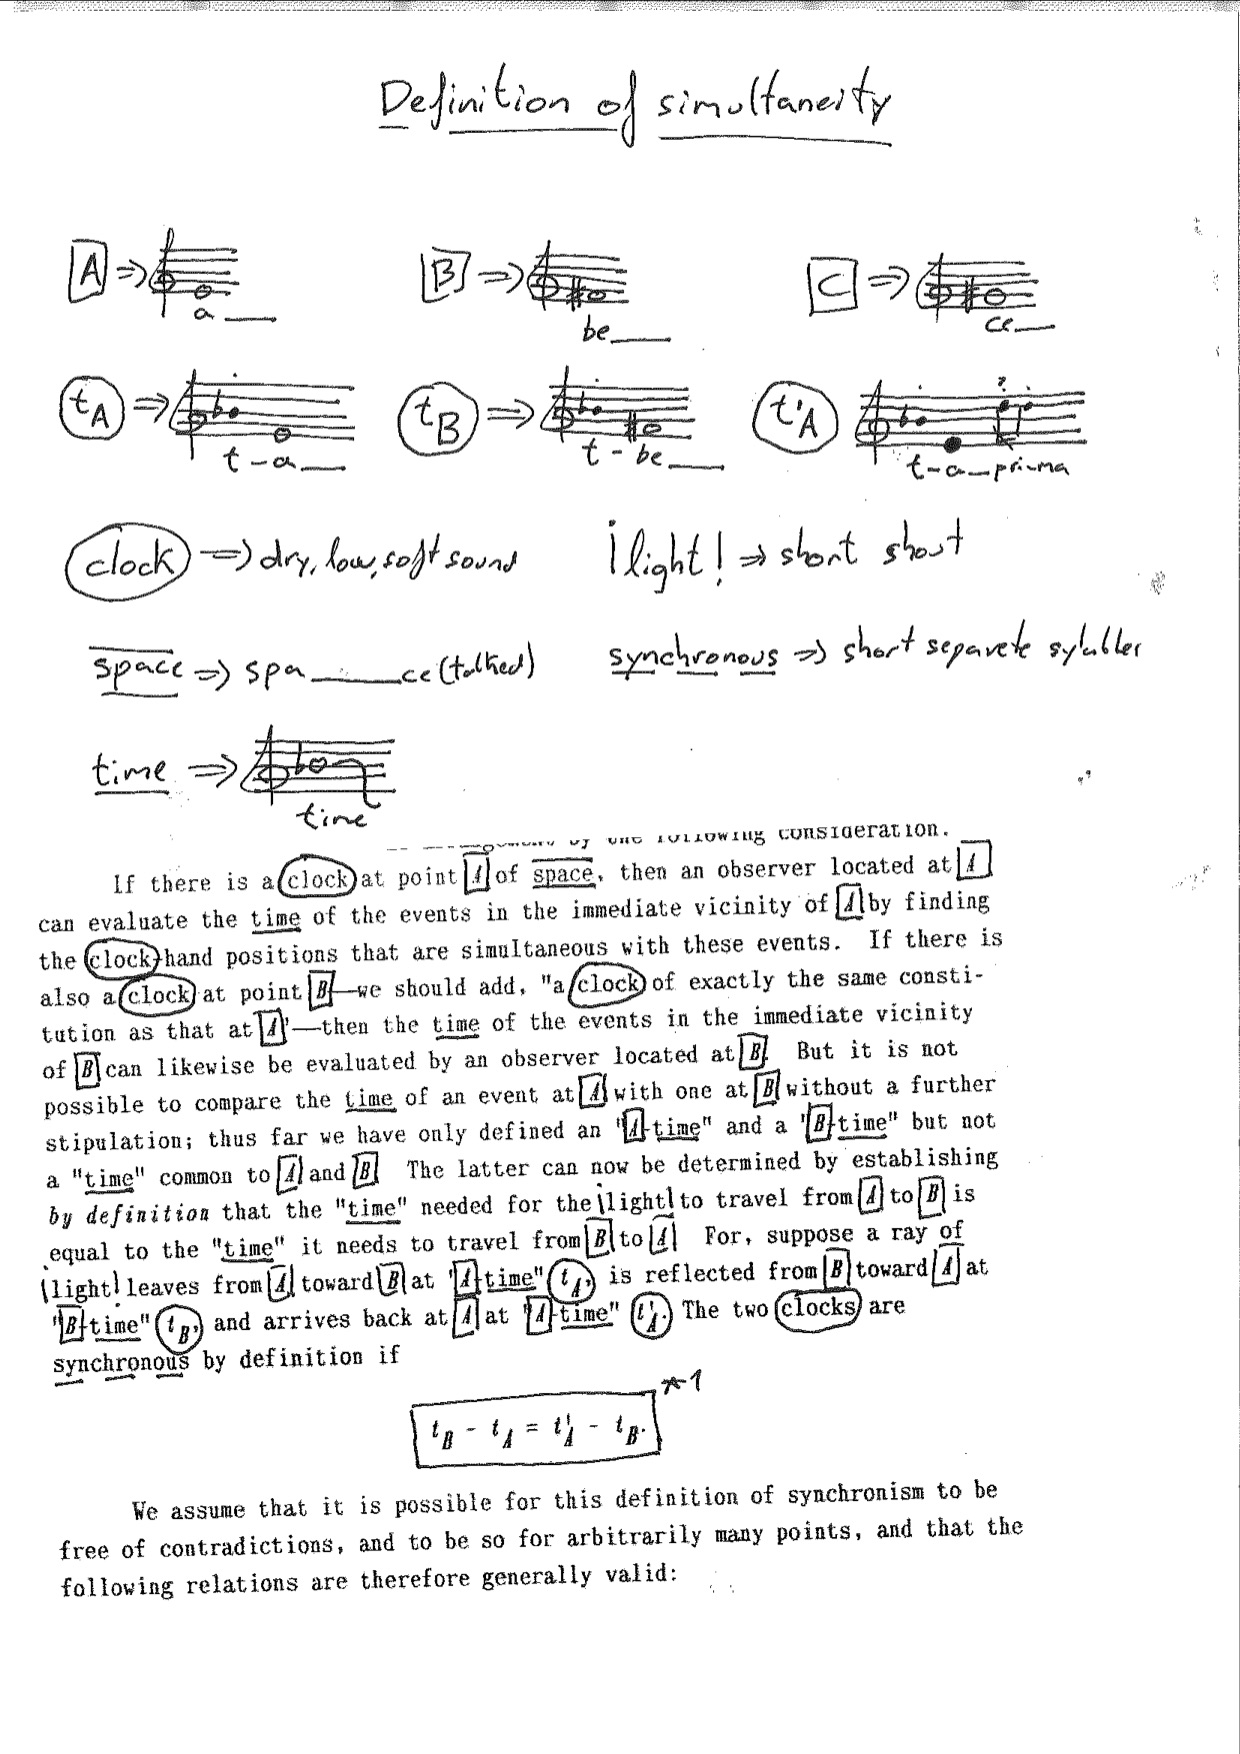 Definition of simultaneity
A ⇒ a__
B ⇒ be__
C ⇒ ce__
tA ⇒ t-a__
tB ⇒ t-be__
t'A t-a_pri-ma
clock ⇒ dry, low, soft sound
¡light! ⇒ short shout
space ⇒ spa____ce (talked)
synchronous ⇒ short separete sylables
time ⇒ time
by the following consideration.
If there is a clock at point A of space, then an observer located at A
can evaluate the time of the events in the immediate vicinity of A by finding
the clock hand positions that are simultaneous with these events. If there is
also a clock at point B—we should add, "a clock of exactly the same consti-
tution as that at A"—then the time of the events in the immediate vicinity
of B can likewise be evaluated by an observer located at B. But it is not
possible to compare the time of an event at A with one at B without a further
stipulation; thus far we have only defined an "A-time" and a "B-time" but not
a "time" common to A and B. The latter can now be determined by establishing
by definition that the "time" needed for the ¡light! to travel from A to B is
equal to the "time" it needs to travel from B to A. For, suppose a ray of
¡light! leaves from A toward B at "A-time" tA, is reflected from B toward A at
"B-time" tB, and arrives back at A at "A-time" t'A. The two clocks are
synchronous by definition if
tB - tA = t'A - tB. *1
We assume that it is possible for this definition of synchronism to be
free of contradictions, and to be so for arbitrarily many points, and that the
following relations are therefore generally valid: